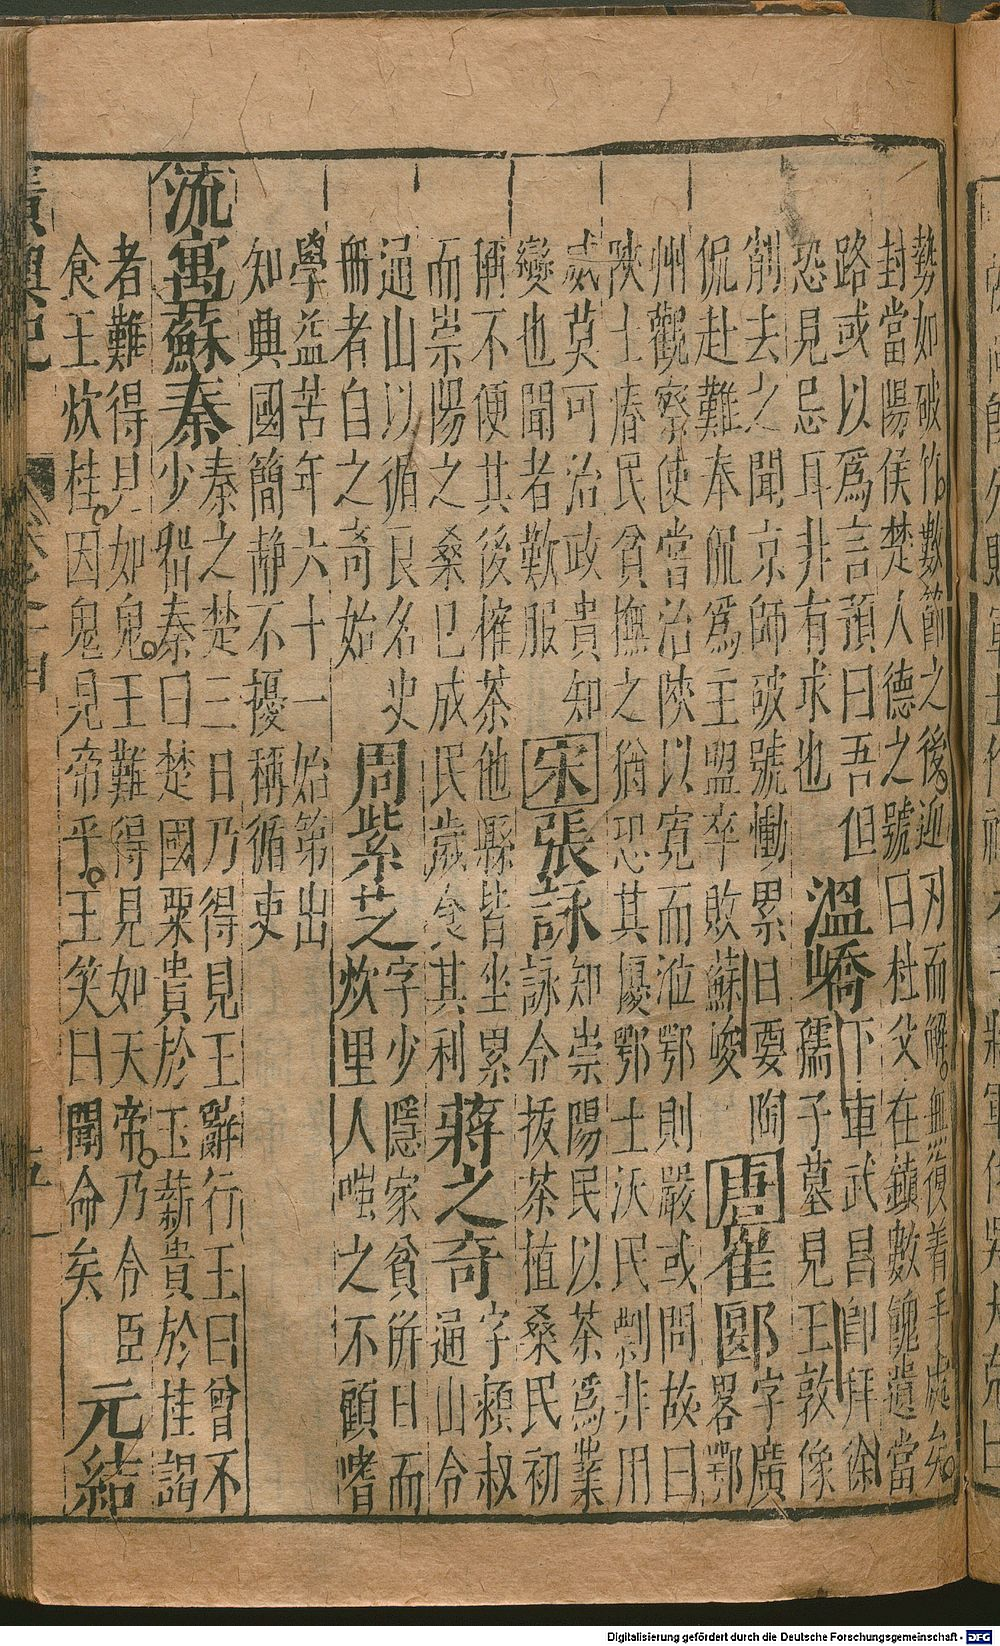 勢如破竹數節之後迎刃而解無復着手處矣
封當陽侯楚人德之號曰杜父在鎮數餽遺當
路或以爲言預曰吾但
恐見忌耳非有求也
溫嶠
下車武昌卽拜徐
孺子墓見王敦像
削去之聞京師破號慟累日要陶
侃赴難奉侃爲主盟卒敗蘇峻
唐崔郾
字廣
畧鄂
州觀察使嘗治陝以寬而涖鄂則嚴或問故曰
陝土瘠民貧撫之猶恐其擾鄂土沃民剽非用
威莫可治政貴知
變也聞者歎服
宋張詠
知崇陽民以茶爲業
詠令拔茶植桑民初
稱不便其後榷茶他縣皆坐累
而崇陽之桑已成民歲食其利
蔣之奇
字頴叔
通山令
通山以循良名史
冊者自之奇始
周紫芝
字少隱家貧併日而
炊里人嗤之不顧嗜
學益苦年六十一始第出
知典國簡靜不擾稱循吏
流寓蘇秦
秦之楚三日乃得見王辭行王曰曾不
少畱秦曰楚國粟貴於玉薪貴於桂謁
者難得見如鬼王難得見如天帝乃令臣
食王炊桂因鬼見帝乎王笑曰聞命矣
元結
廣輿記
卷之十四
五
Digitalisierung gefördert durch die Deutsche Forschungsgemeinschaft - DFG